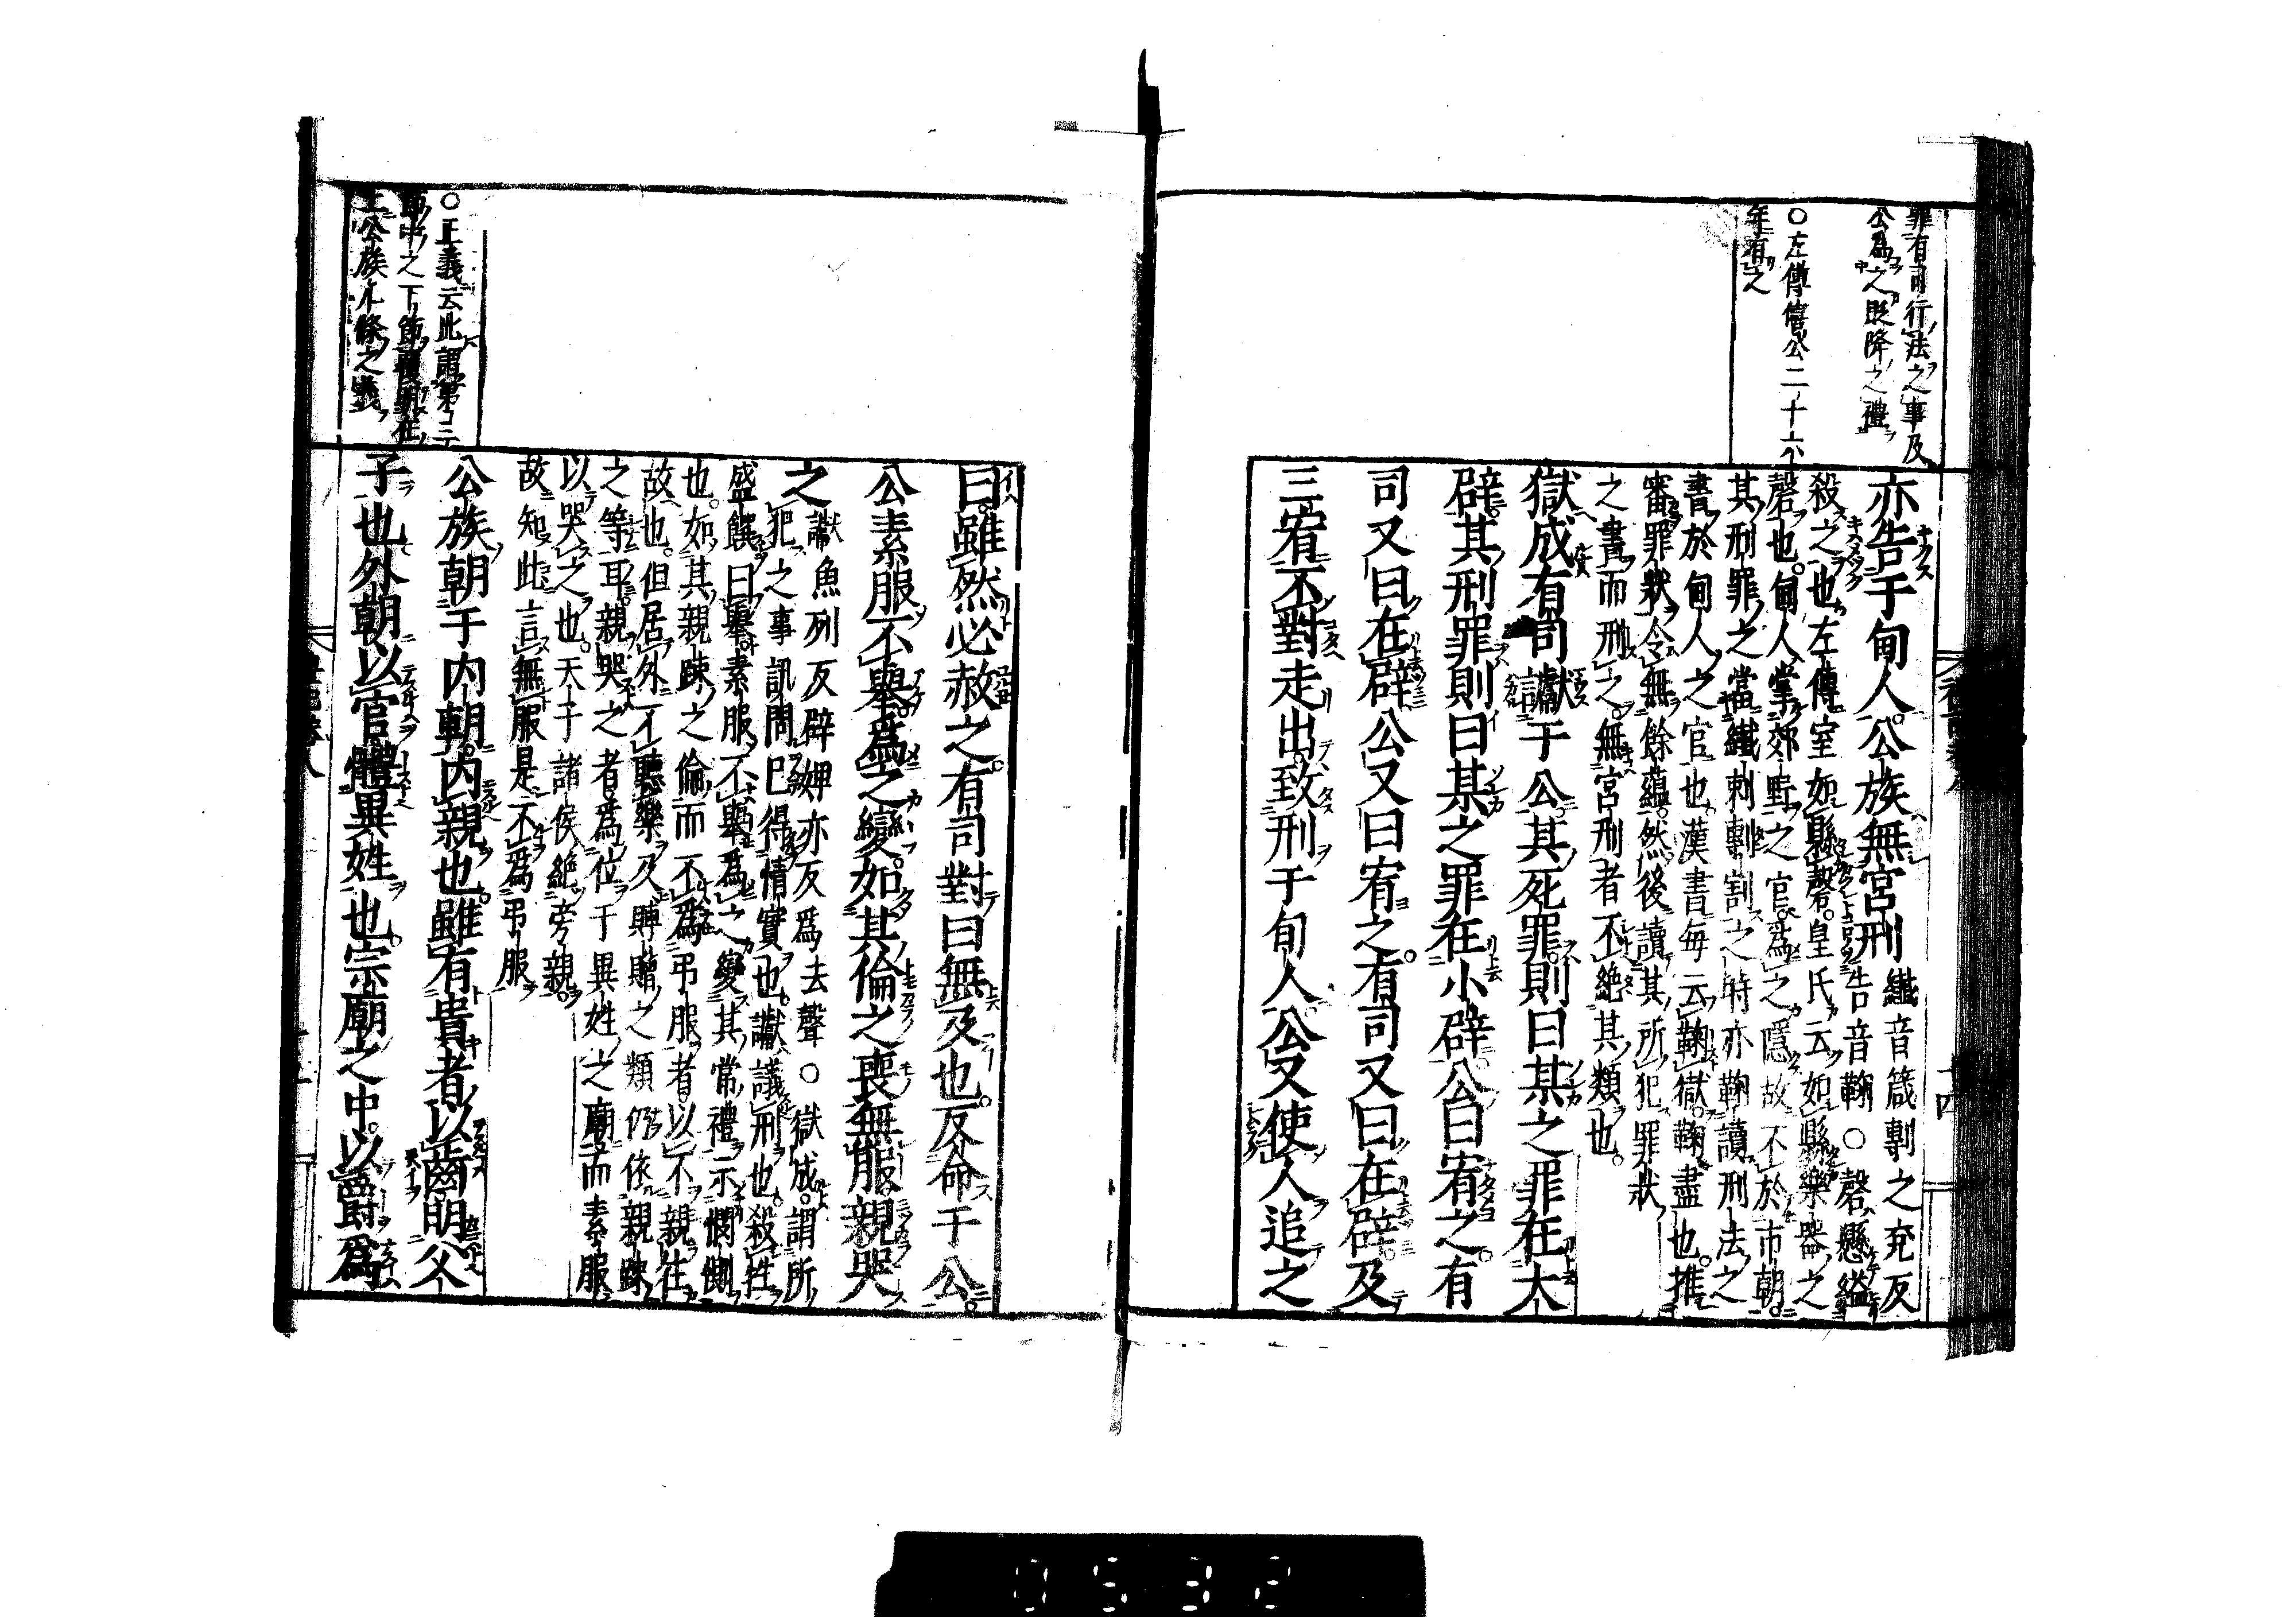 罪有司行法之事及
公爲之既降之禮
○左傳僖公二十六
年有之
亦告于甸人公族無宮刑纖音箴剸之兗反
告音鞠○磬懸縊
殺之也左傳室如縣磬皇氏云如縣樂器之
磬也甸人掌郊野之官爲之隱故不於市朝
其刑罪之當纖刺剸割之時亦鞠讀刑法之
書於甸人之官也漢書每云鞠獄鞠盡也推
審罪狀令無餘蘊然後讀其所犯罪狀
之書而刑之無宮刑者不絶其類也
獄成有司讞于公其死罪則曰某之罪在大
辟其刑罪則曰某之罪在小辟公曰宥之有
司又曰在辟公又曰宥之有司又曰在辟及
三宥不對走出致刑于甸人公又使人追之
曰雖然必赦之有司對曰無及也反命于公
公素服不舉爲之變如其倫之喪無服親哭
之讞魚列反辟婢亦反爲去聲○獄成謂所
犯之事訊問已得情實也讞議刑也殺牲
盛饌曰舉素服不舉爲之變其常禮示憫惻
也如其親踈之倫而不爲弔服者以不親往
故也但居外不聽樂及賻贈之類仍依親踈
之等耳親哭之者爲位于異姓之廟而素服
以哭之也天子諸侯絶旁親
故知此言無服是不爲弔服
公族朝于内朝内親也雖有貴者以齒明父
子也外朝以官體異姓也宗廟之中以爵爲
○正義云此謂第二
節中之下節覆明在
上公族不條之義